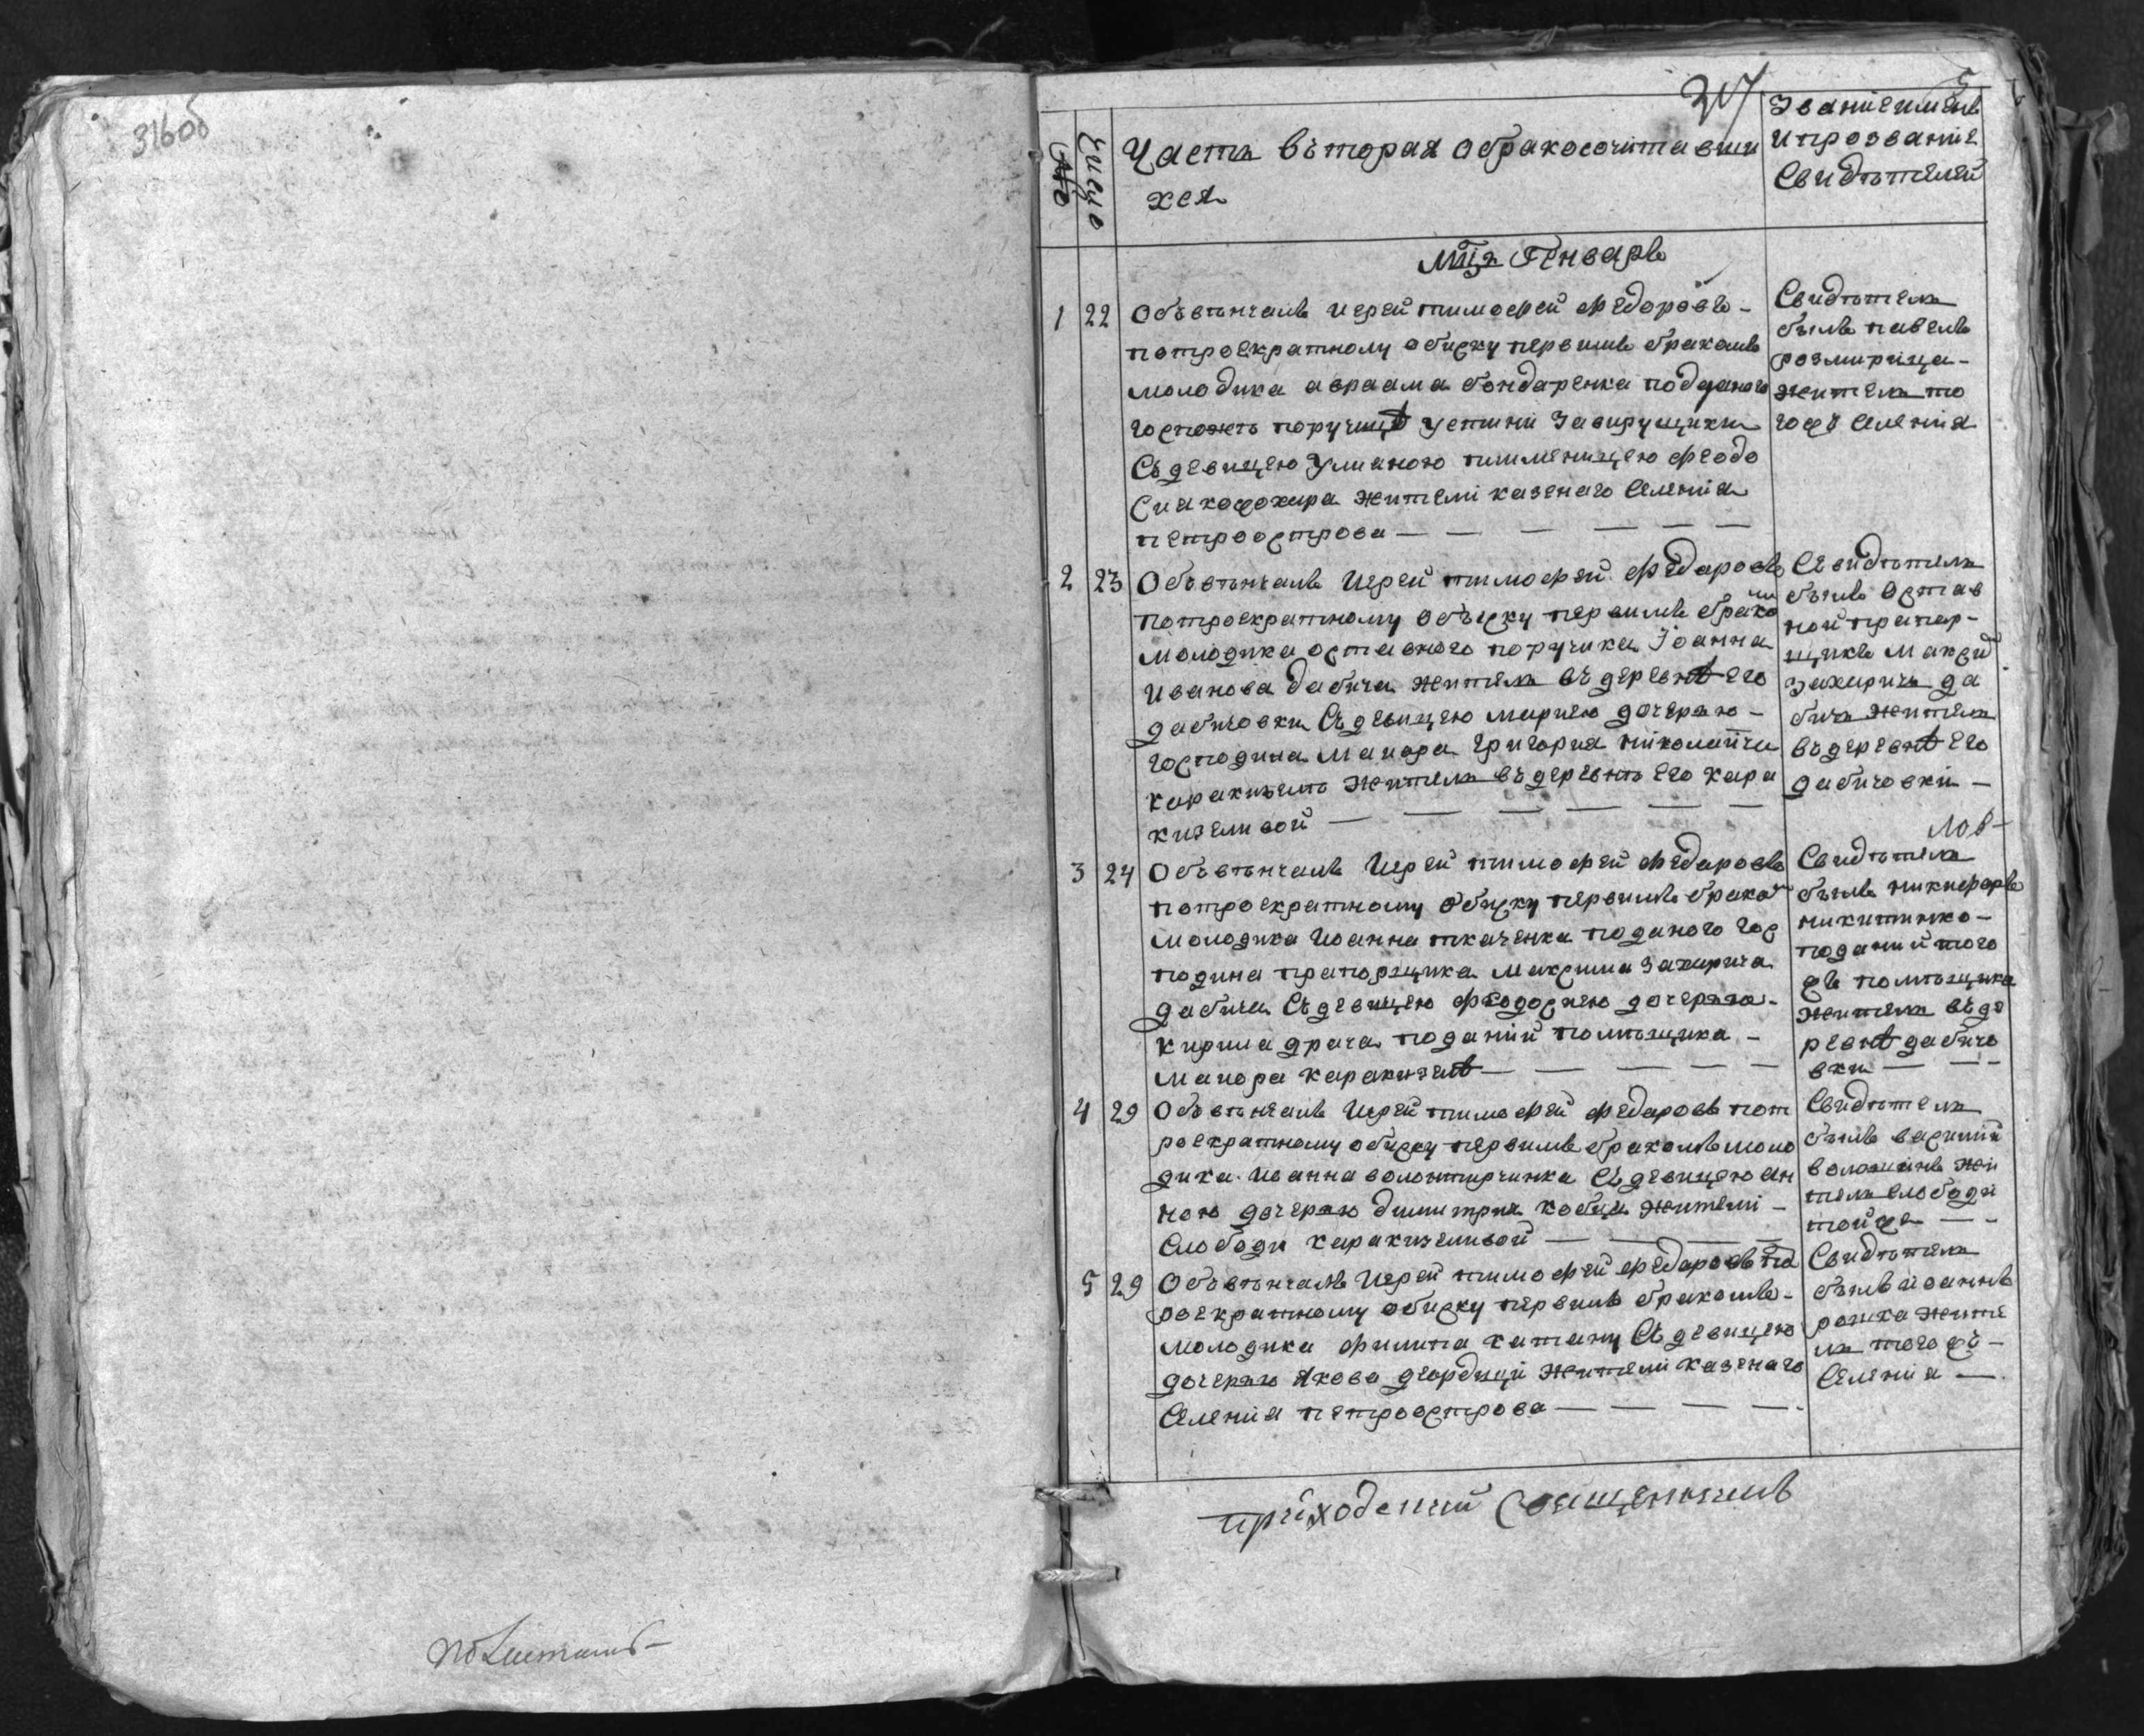 316об
по Листамъ
317
5
Число
Часть вьторая обракосочитавши
хся
Званіе имень
и прозваніе
Свидѣтелей
мца Генварь
1 22 Обьвѣнчалъ иерей тимофей федоровъ -
потроекратному обиску первимъ бракомъ
молодика авраама бондаренка подданаго
госпожѣ поручицѣ устини Завирущихи
Съ девицею Улианою
жители казенаго Селенія
петроострова
Свидѣтель
былъ павелъ
розмирица -
житель то
гожъ Селенія
2 23 Обьвѣнчалъ Иерей тимофей федаровъ
потроекратному обыску первимъ бракомъ
молодика оставного поручика Іоанна
Иванова дабича житель въ деревнѣ его
дабичовки Съ девицею мариею дочерью -
господина маиора григория николаича
каракизелѣ житель въ деревнѣ его кара
кизеливой
Свидѣтель
былъ Остав
ной прапор-
щикъ Максим
Захаричь да
бичь житель
въ деревнѣ его
дабичовки -
3 24 Обьвѣнчалъ Иерей тимофей федаровъ
потроекратному обиску первимъ браком
молодика иоанна ткаченка поданого гос
подина прапорщика максима Захарича
дабича Съ девицею феодосиею дочерью -
кирила драча поданій помѣщика -
маиора каракизелѣ
Свидѣтель
былъ никифоръ
никитинко -
поданий того
жъ помѣщика
житель въ де
ревнѣ дабичо
вки
4 29 Обьвѣнчалъ Иерей тимофей федаровъ пот
роекратному обиску первимъ бракомъ моло
дика иоанна волонтирчинка Съ девицею ан
ною дочерью димитрия кобца жители -
Слободи каракизеливой
Свидѣтель
былъ василий
волошинъ жи
тель слободи
тойже
5 29 Обьвѣнчалъ Иерей тимофей федаровъ пот
роекратному обиску первимъ бракомъ -
молодика филипа катану Съ девицею
дочерью якова жители казенаго
Селенія петроострова
Свидѣтель
былъ иоаннъ
рошка жите
ль тогожъ -
Селенія
приходский Священникъ